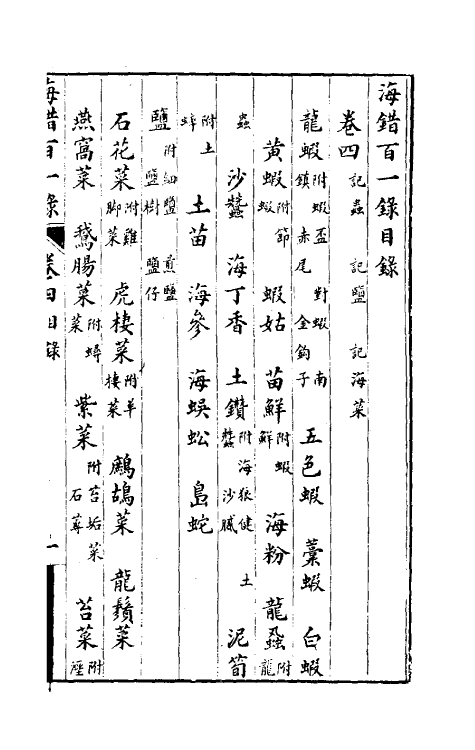 海錯百一錄目錄
卷四 記蟲 記鹽 記海菜
龍蝦 附蝦盃 對蝦 南鎮 赤尾 金鉤子 五色蝦 藁蝦 白蝦
黃蝦 附節蝦 蝦姑 苗鮮 附蝦鮮 海粉 龍蝨 附龍
蟲 沙蠶 海丁香 土鑽 附海狼健 土蠶 沙膩 泥筍
附土蚌 土苗 海參 海蜈蚣 島蛇
鹽 附細鹽 煎鹽 鹽樹 鹽仔
石花菜 附雞脚菜 虎棲菜 附羊棲菜 鷓鴣菜 龍鬚菜
燕窩菜 鵝腸菜 附蟳菜 紫菜 附苔垢菜 石蓴 苔菜 附
海錯百一錄 卷四目錄 一